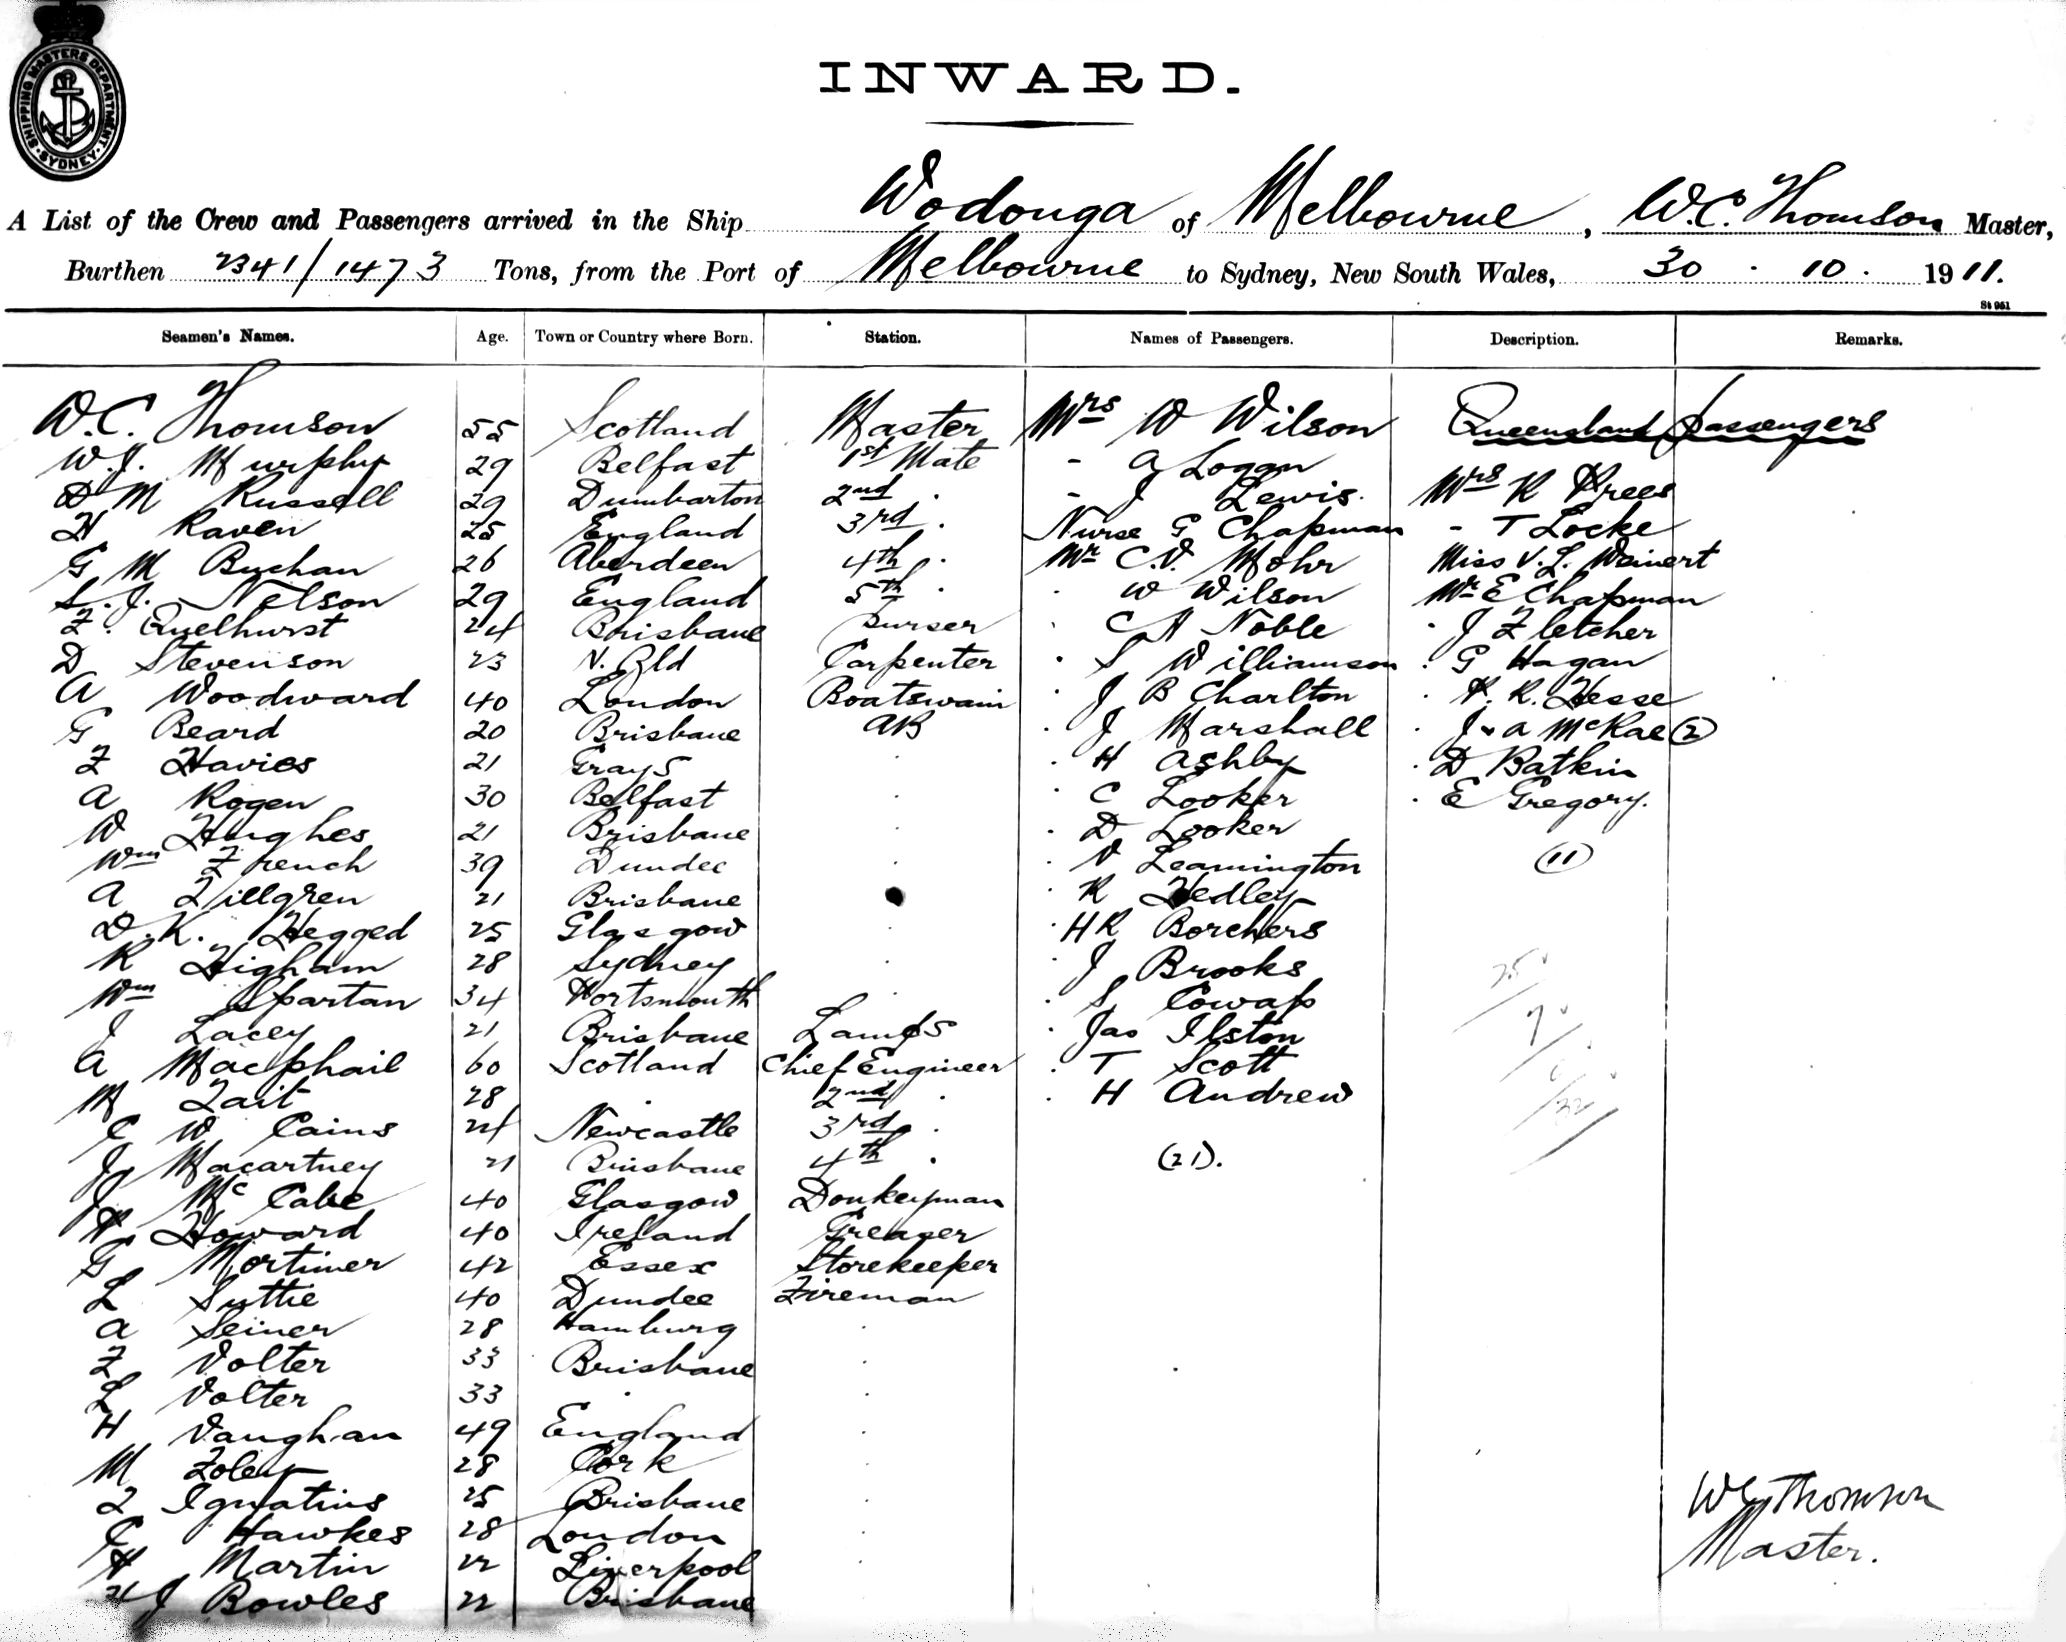 SHIPPING MASTERS DEPARTMENT. SYDNEY.
INWARD.
A List of the Crew and Passengers arrived in the Ship Wodonga of Melbourne, W.C. Thomson Master,
Burthen 2341/1473 Tons, from the Port of Melbourne to Sydney, New South Wales, 30 . 10 . 1911.
St 951
Seamen's Names. Age. Town or Country where Born. Station. Names of Passengers. Description. Remarks.
W.C. Thomson 55 Scotland Master Mrs W Wilson Queensland passengers
W.J. Murphy 29 Belfast 1st Mate - A Logan
D M Russell 29 Dumbarton 2nd . - J Lewis. Mrs K Krees
H Raven 25 England 3rd . Nurse G Chapman - T Locke
G M Buchan 26 Aberdeen 4th . Mr C.V. Mohr Miss V.L. Weinert
S.J. Nelson 29 England 5th . . W Wilson Mr E Chapman
F. Quelhurst 24 Brisbane Purser . C A Noble . J Fletcher
D Stevenson 23 N. Qld Carpenter . S Williamson . G Hagan
A Woodward 40 London Boatswain . J B Charlton . H. R. Hesse
G Beard 20 Brisbane AB . J Marshall . J & A McRae (2)
F Davies 21 Grays . . H Ashby . D Batkin
A Rogen 30 Belfast . . C Looker . E Gregory.
W Hughes 21 Brisbane . . D Looker
Wm French 39 Dundee . . V Leamington (11)
A Tillgren 21 Brisbane . . K Hedley
D.K. Hegged 25 Glasgow . . HR Borchers
R Higham 28 Sydney . . J Brooks
Wm Spartan 34 Portsmouth . . S Cowap
J Lacey 21 Brisbane Lamps . Jas Ilston
A Macphail 60 Scotland Chief Engineer . T Scott
M Tait 28 . 2nd . . H Andrew
C W Cains 24 Newcastle 3rd .
J Macartney 21 Brisbane 4th . (21).
J McCabe 40 Glasgow Donkeyman
P Howard 40 Ireland Greaser
G Mortimer 42 Essex Storekeeper
L Suttie 40 Dundee Fireman
A Seiner 28 Hamburg .
F Volter 33 Brisbane .
L Volter 33 . .
H Vaughan 49 England .
M Foley 28 Cork .
Ignatius 25 Brisbane .
C Hawkes 28 London .
H Martin 22 Liverpool .
J Bowles 22 Brisbane
WC Thomson
Master.